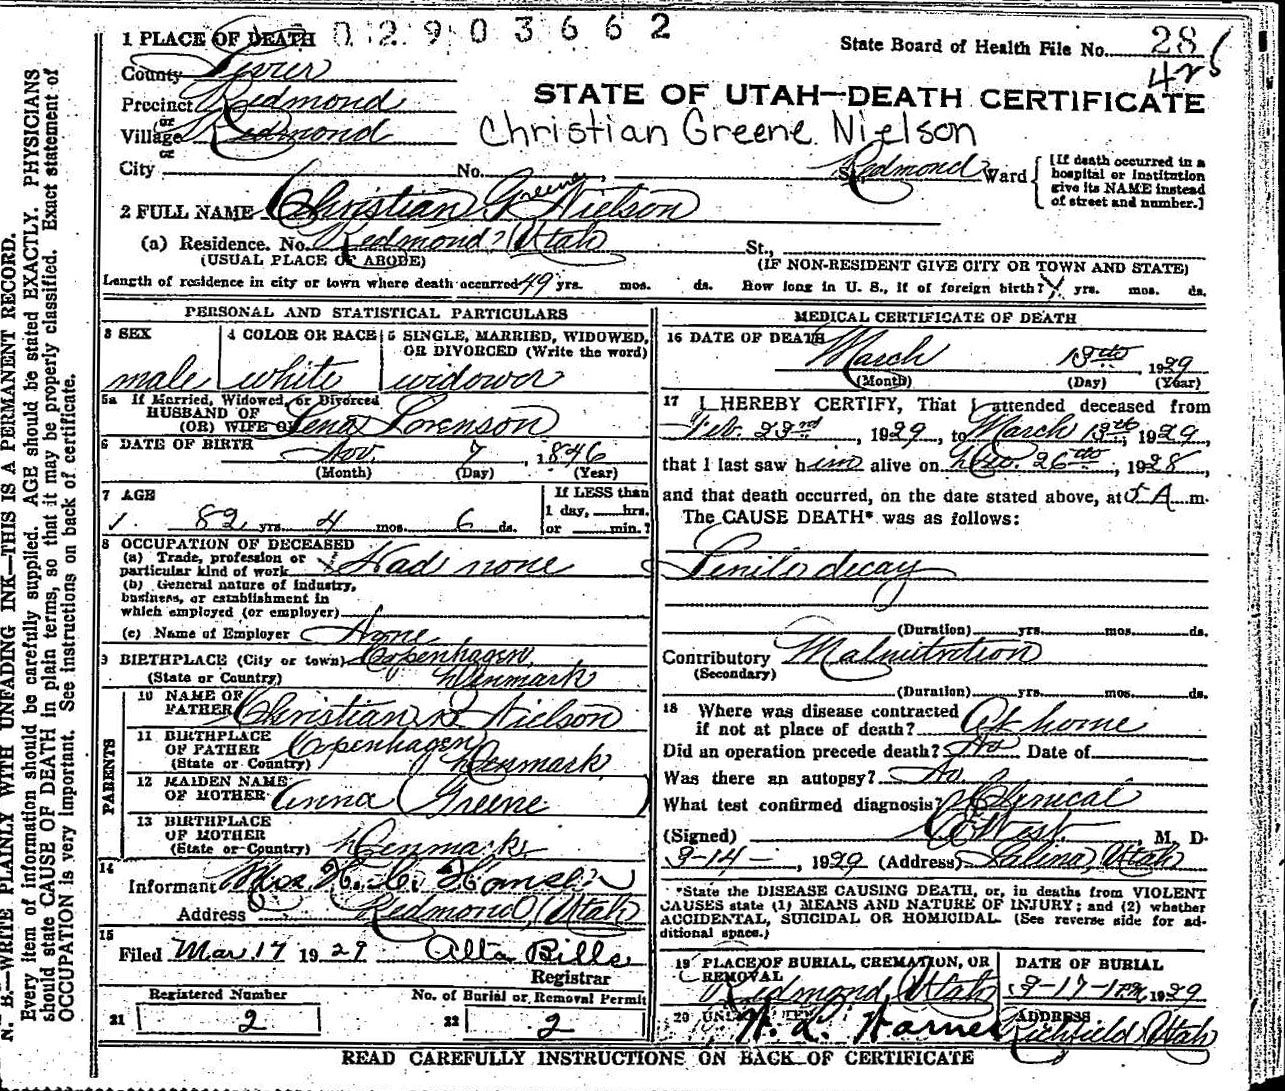 1 PLACE OF DEATH 0 2 9 0 3 6 6 2
State Board of Health File No. 28
425
County Sevier
Precinct Redmond
or
Village Redmond
or
City No. St. Redmond Ward
STATE OF UTAH—DEATH CERTIFICATE
Christian Greene Nielson
[If death occurred in a
hospital or institution
give its NAME instead
of street and number.]
2 FULL NAME Christian Greene Nielson
(a) Residence. No. Redmond, Utah St.,
(USUAL PLACE OF ABODE) (IF NON-RESIDENT GIVE CITY OR TOWN AND STATE)
Length of residence in city or town where death occurred 49 yrs. mos. ds. How long in U. S., if of foreign birth? yrs. mos. ds.
PERSONAL AND STATISTICAL PARTICULARS
3 SEX 4 COLOR OR RACE 5 SINGLE, MARRIED, WIDOWED,
OR DIVORCED (Write the word)
male white widower
5a If Married, Widowed, or Divorced
HUSBAND OF
(OR) WIFE OF Lena Sorenson
6 DATE OF BIRTH Nov. 7, 1846
(Month) (Day) (Year)
7 AGE If LESS than
1 day, hrs.
82 yrs. 4 mos. 6 ds. or min.?
8 OCCUPATION OF DECEASED
(a) Trade, profession or
particular kind of work Had none
(b) General nature of industry,
business, or establishment in
which employed (or employer)
(c) Name of Employer None
9 BIRTHPLACE (City or town) Copenhagen,
(State or Country) Denmark
PARENTS
10 NAME OF
FATHER Christian Nielson
11 BIRTHPLACE
OF FATHER Copenhagen
(State or Country) Denmark
12 MAIDEN NAME
OF MOTHER Anna Greene
13 BIRTHPLACE
OF MOTHER
(State or Country) Denmark
14
Informant
Address Redmond, Utah
15
Filed Mar. 17 1929 Alta Bills
Registrar
Registered Number No. of Burial or Removal Permit
21 2 22 2
MEDICAL CERTIFICATE OF DEATH
16 DATE OF DEATH
March 13th 1929
(Month) (Day) (Year)
17 I HEREBY CERTIFY, That I attended deceased from
Feb. 23rd, 1929, to March 13th, 1929,
that I last saw him alive on 26th, 1928,
and that death occurred, on the date stated above, at 5 A m.
The CAUSE DEATH* was as follows:
Senile decay
(Duration) yrs. mos. ds.
Contributory Malnutrition
(Secondary)
(Duration) yrs. mos. ds.
18 Where was disease contracted
if not at place of death? At home
Did an operation precede death? No Date of
Was there an autopsy? No
What test confirmed diagnosis? Clinical
(Signed) West M. D.
3-14-, 1929 (Address) Salina, Utah
*State the DISEASE CAUSING DEATH, or, in deaths from VIOLENT
CAUSES state (1) MEANS AND NATURE OF INJURY; and (2) whether
ACCIDENTAL, SUICIDAL OR HOMICIDAL. (See reverse side for ad-
ditional space.)
19 PLACE OF BURIAL, CREMATION, OR
REMOVAL
Redmond, Utah
DATE OF BURIAL
3-17- 1929
20
ADDRESS
Richfield, Utah
READ CAREFULLY INSTRUCTIONS ON BACK OF CERTIFICATE
N. B.—WRITE PLAINLY WITH UNFADING INK—THIS IS A PERMANENT RECORD.
Every item of information should be carefully supplied. AGE should be stated EXACTLY. PHYSICIANS
should state CAUSE OF DEATH in plain terms, so that it may be properly classified. Exact statement of
OCCUPATION is very important. See instructions on back of certificate.